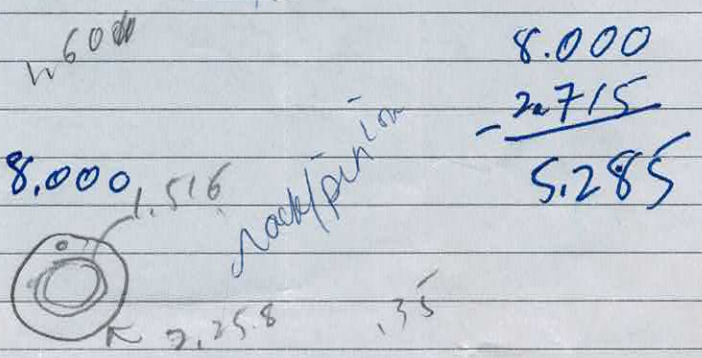 8.000
- 2.715
5.285
8.000
1.516
rack/pinion
2.258
.35